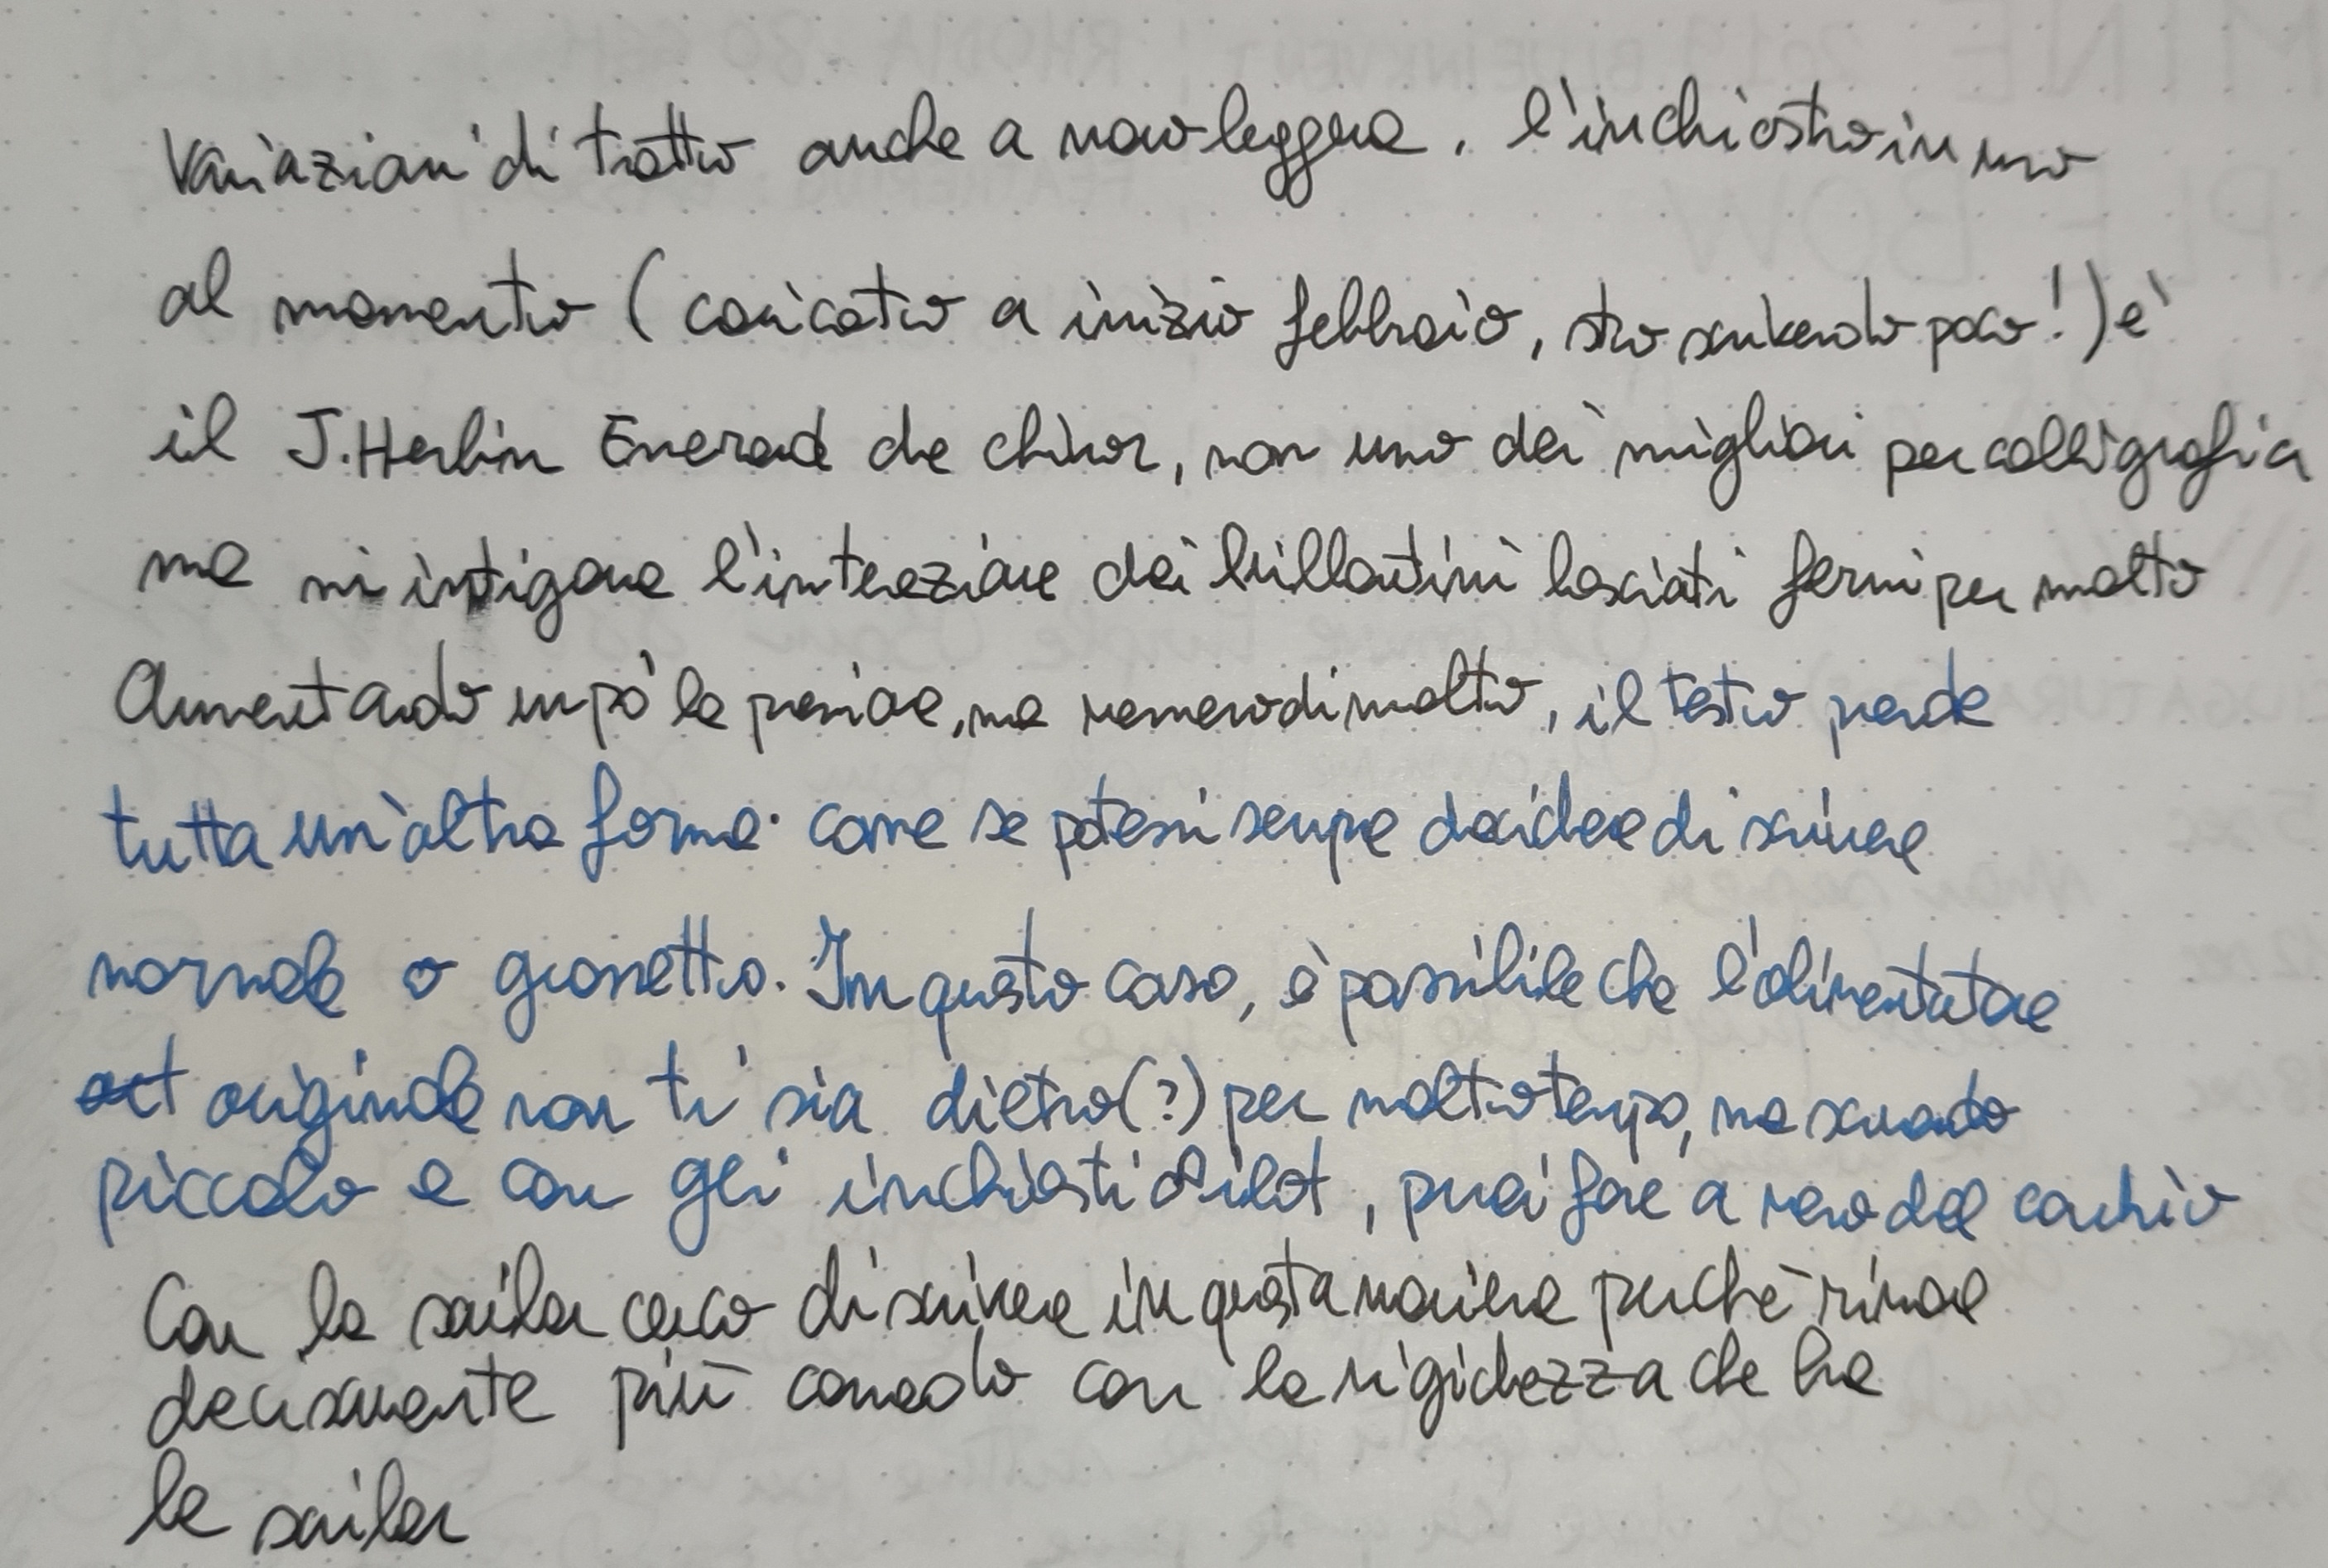 Variazioni di tratto anche a mano leggera. l'inchiostro in uso
al momento (caricato a inizio febbraio, sto scrivendo poco!) è
il J.Herbin Emerad de chivor, non uno dei migliori per calligrafia
ma mi intigava l'interazione dei brillantini lasciati fermi per molto
Aumentando un pò la pressione, ma nemmeno di molto, il testo prende
tutta un'altra forma. come se potessi sempre decidere di scrivere
normale o grossetto. In questo caso, è possibile che l'alimentatore
originale non ti sia dietro(?) per molto tempo, ma scrivendo
piccolo e con gli inchiostri Pilot, puoi fare a meno del cambio
Con la sailor cerco di scrivere in questa maniera perchè rimane
decisamente più comodo con la rigidezza che ha
la sailor